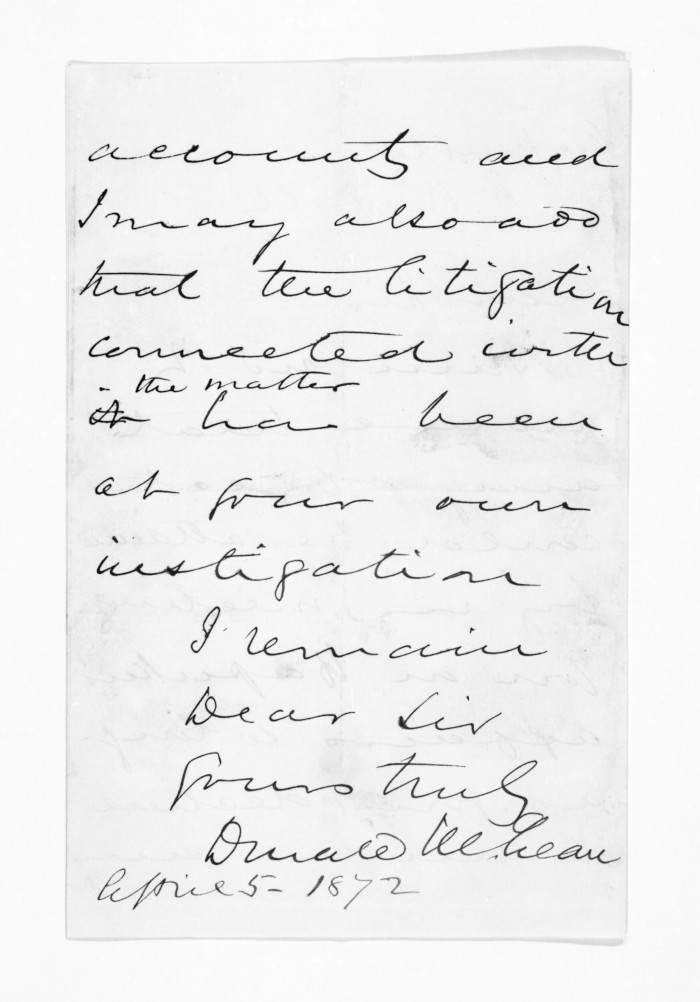 accounts and
I may also add
that the litigation
connected with
the matter
has been
at your own
instigation
I remain
Dear Sir
Yours truly
Donald McLean
April 5 - 1872